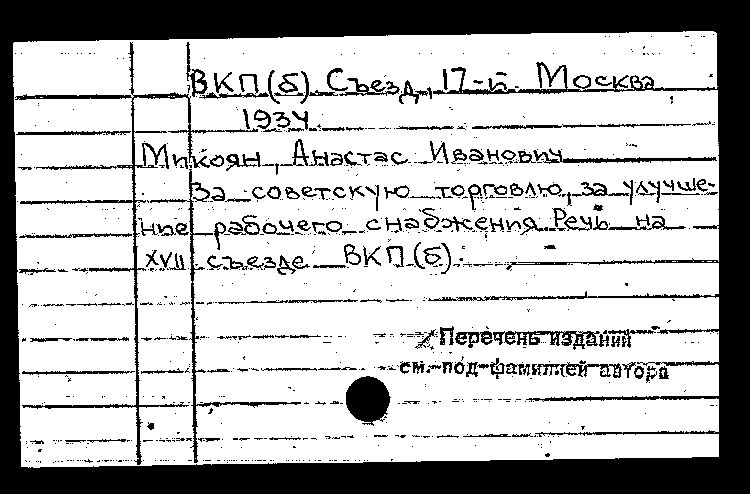 ВКП(б). Съезд, 17-й. Москва
1934.
Микоян, Анастас Иванович
За советскую торговлю, за улучше-
ние рабочего снабжения. Речь на
XVII съезде ВКП(б).
Перечень изданий
см. под фамилией автора